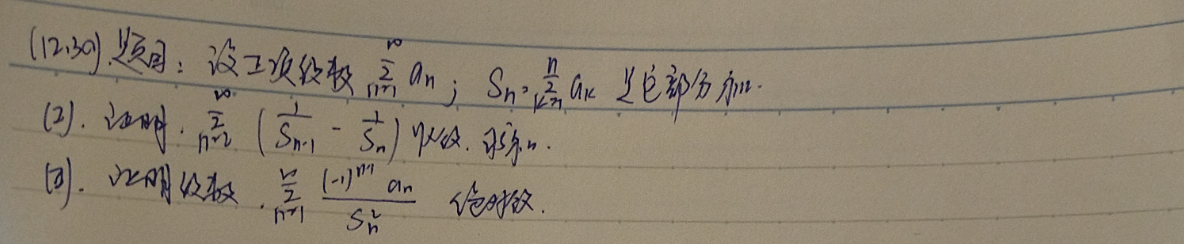 (12.30). 题目: 设正项级数 $\sum_{n=1}^{\infty} a_n$; $S_n = \sum_{k=1}^{n} a_k$ 是它部分和.
(2). 证明. $\sum_{n=2}^{\infty} \left( \frac{1}{S_{n-1}} - \frac{1}{S_n} \right)$ 收敛. 求和.
(3). 证明级数. $\sum_{n=1}^{\infty} \frac{(-1)^{n+1} a_n}{S_n^2}$ 绝对收敛.